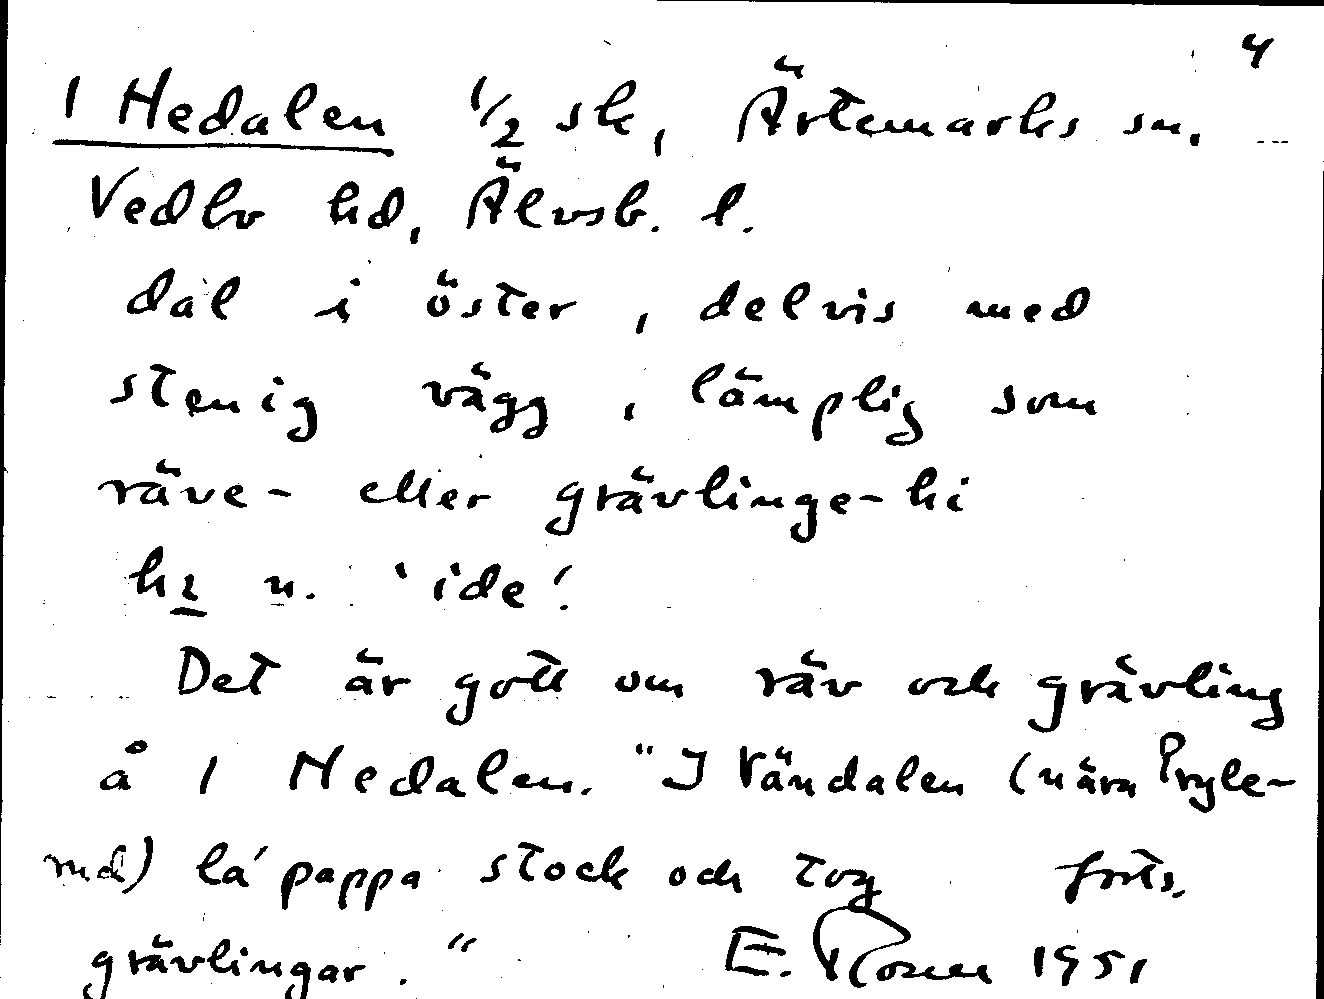 4
1 Hedalen 1/2 sk, Ärtemarks sn.
Vedbo hd, Älvsb. l.
dal i öster, delvis med
stenig vägg, lämplig som
räve- eller grävlinge-hi
hı n. 'ide'.
Det är gott om räv och grävling
å 1 Hedalen. "I Vändalen (nära Pryle-
md) la' pappa stock och tog forts.
grävlingar." E. Rosell 1951